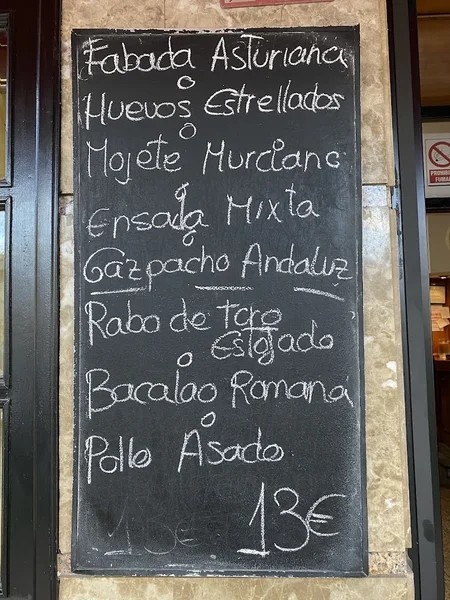 Fabada Asturiana
o
Huevos Estrellados
o
Mojete Murciano
o
Ensada Mixta
o
Gazpacho Andaluz
Rabo de Toro
Estofado
o
Bacalao Romana
o
Pollo Asado
13€
13€
PROHIBIDO
FUMAR